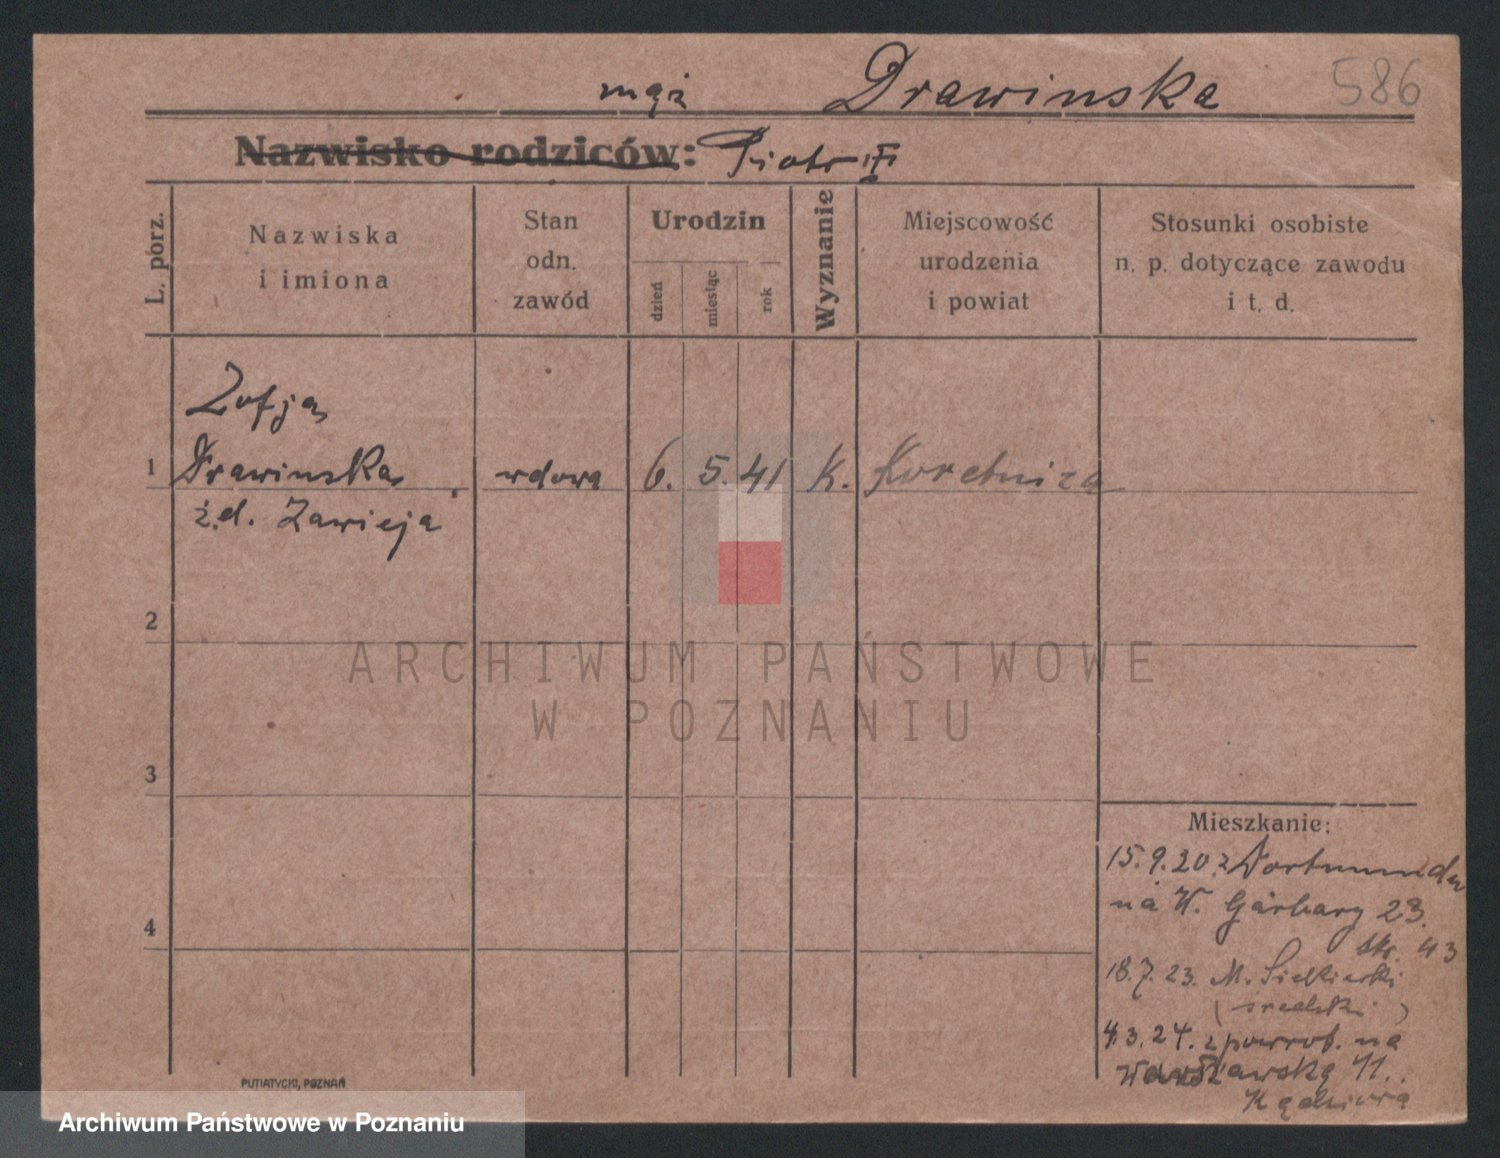 mąż Drawinska 586
Nazwisko rodziców: Piotr
L. porz.
Nazwiska
i imiona
Stan
odn.
zawód
Urodzin
dzień
miesiąc
rok
Wyznanie
Miejscowość
urodzenia
i powiat
Stosunki osobiste
n. p. dotyczące zawodu
i t. d.
Zofja
1 Drawinska wdowa 6. 5. 41 K.
ż.d. Zawieja
2
ARCHIWUM PAŃSTWOWE
W POZNANIU
3
Mieszkanie:
15.9.20 z Dortmundu
na W. Garbary 23.
4
18.7.23. M.
4.3.24. z powrot. na
Warszawską 11.
PUTIATYCKI, POZNAŃ
Archiwum Państwowe w Poznaniu